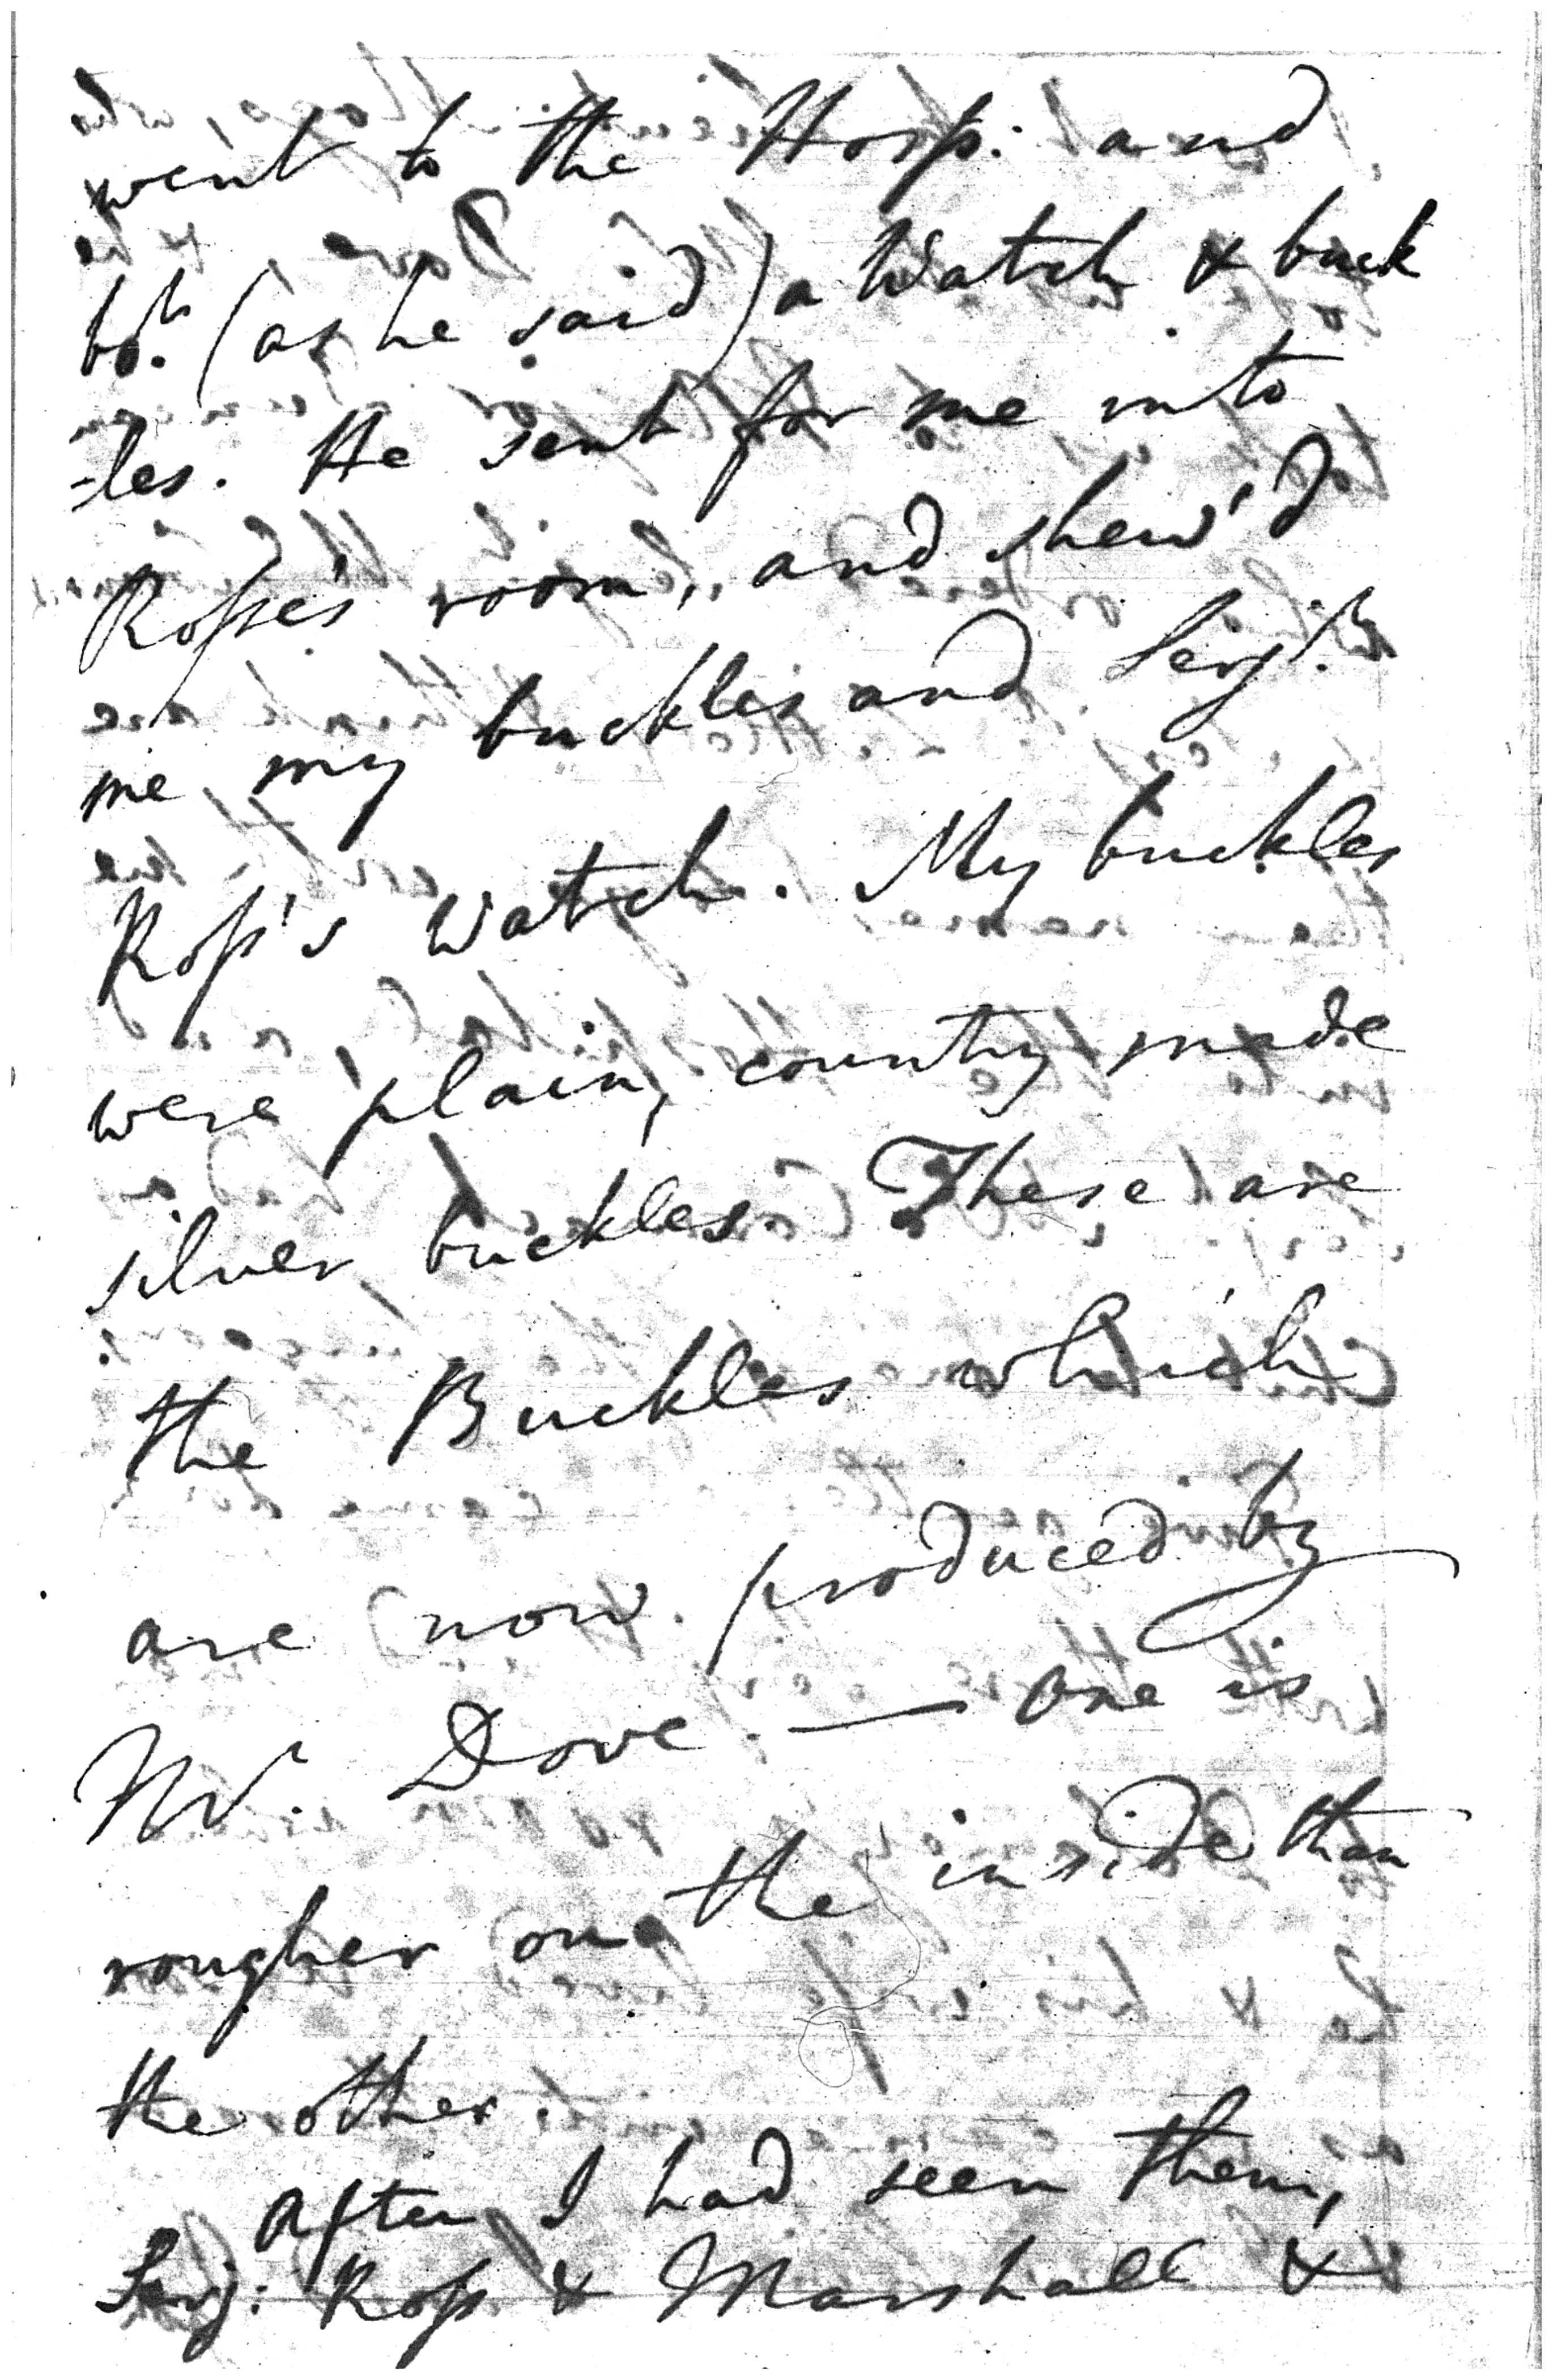 went to the Hosp: and
bt. (as he said) a Watch & buck
-les. He sent for me into
Rosse's room, and shew'd
me my buckles and Serjt.
Ross's Watch. My buckles
were plain, country made
silver buckles. These are
the Buckles which
are now produced by
Mr. Dove. — One is
rougher on the inside than
the other.
After I had seen them,
Serj: Ross & Marshall &